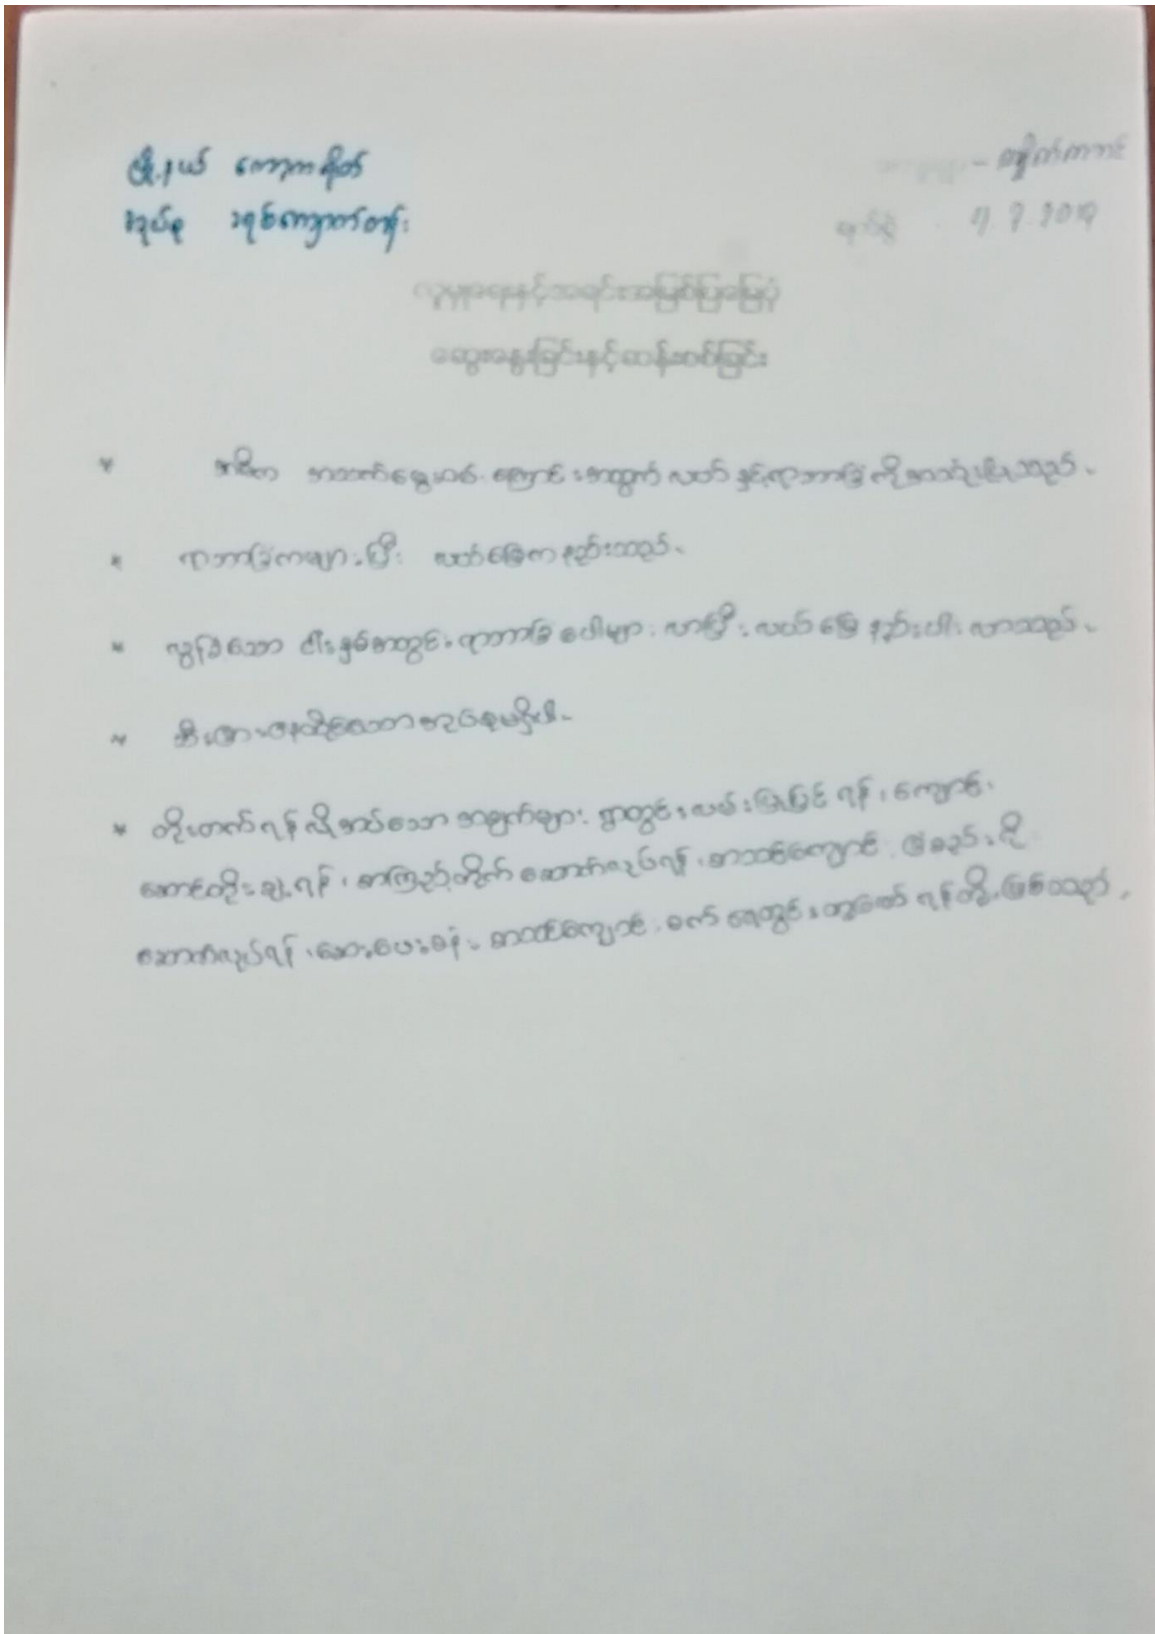 မြို့နယ် ကော့ကရိတ်
အုပ်စု ခရစ်ကျောက်တန်း
ရက်စွဲ ၅.၃.၂၀၁၇
လူမှုရေးနှင့်အရင်းအမြစ်ပြမြေပုံ
ဆွေးနွေးခြင်းနှင့်ဆန်းစစ်ခြင်း
* အဓိက အသက်မွေးဝမ်းကြောင်းအတွက် လယ်နှင့်ရာဘာခြံကိုအသုံးပြုသည်။
* ရာဘာခြံကများပြီး လယ်မြေကနည်းသည်။
* လွန်ခဲ့သော ငါးနှစ်အတွင်းရာဘာခြံပေါများလာပြီးလယ်မြေနည်းပါးလာသည်။
* သီးခြားနေထိုင်သောအုပ်စုမရှိပါ။
* တိုးတက်ရန်လိုအပ်သောအချက်များ ရွာတွင်းလမ်းပြုပြင်ရန်၊ ကျောင်း
ဆောင်တိုးချဲ့ရန်၊ စာကြည့်တိုက်ဆောက်လုပ်ရန်၊ စာသင်ကျောင်းခြံစည်းရိုး
ဆောက်လုပ်ရန်၊ ဆေးပေးခန်း၊ စာသင်ကျောင်း စက်ရေတွင်းတူးဖော်ရန်တို့ဖြစ်သည်။